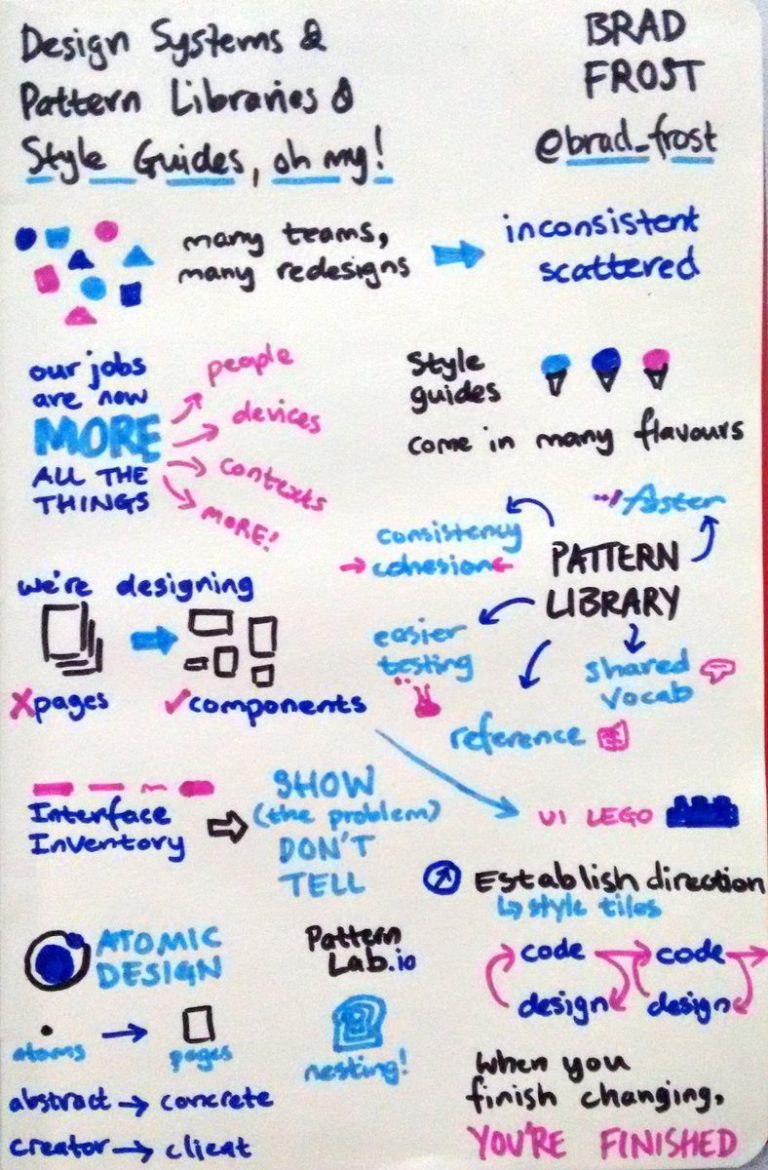 Design Systems &
Pattern Libraries &
Style Guides, oh my!
BRAD
FROST
@brad_frost
many teams,
many redesigns
inconsistent
scattered
our jobs
are now
MORE
ALL THE
THINGS
people
devices
contexts
MORE!
Style
guides
come in many flavours
faster
consistency
cohesion
PATTERN
LIBRARY
easier
testing
shared
vocab
reference
we're designing
pages
components
UI LEGO
Interface
Inventory
SHOW
(the problem)
DON'T
TELL
Establish direction
style tiles
ATOMIC
DESIGN
Pattern
Lab.io
code
code
design
design
atoms
pages
nesting!
abstract → concrete
creator → client
When you
finish changing,
YOU'RE FINISHED